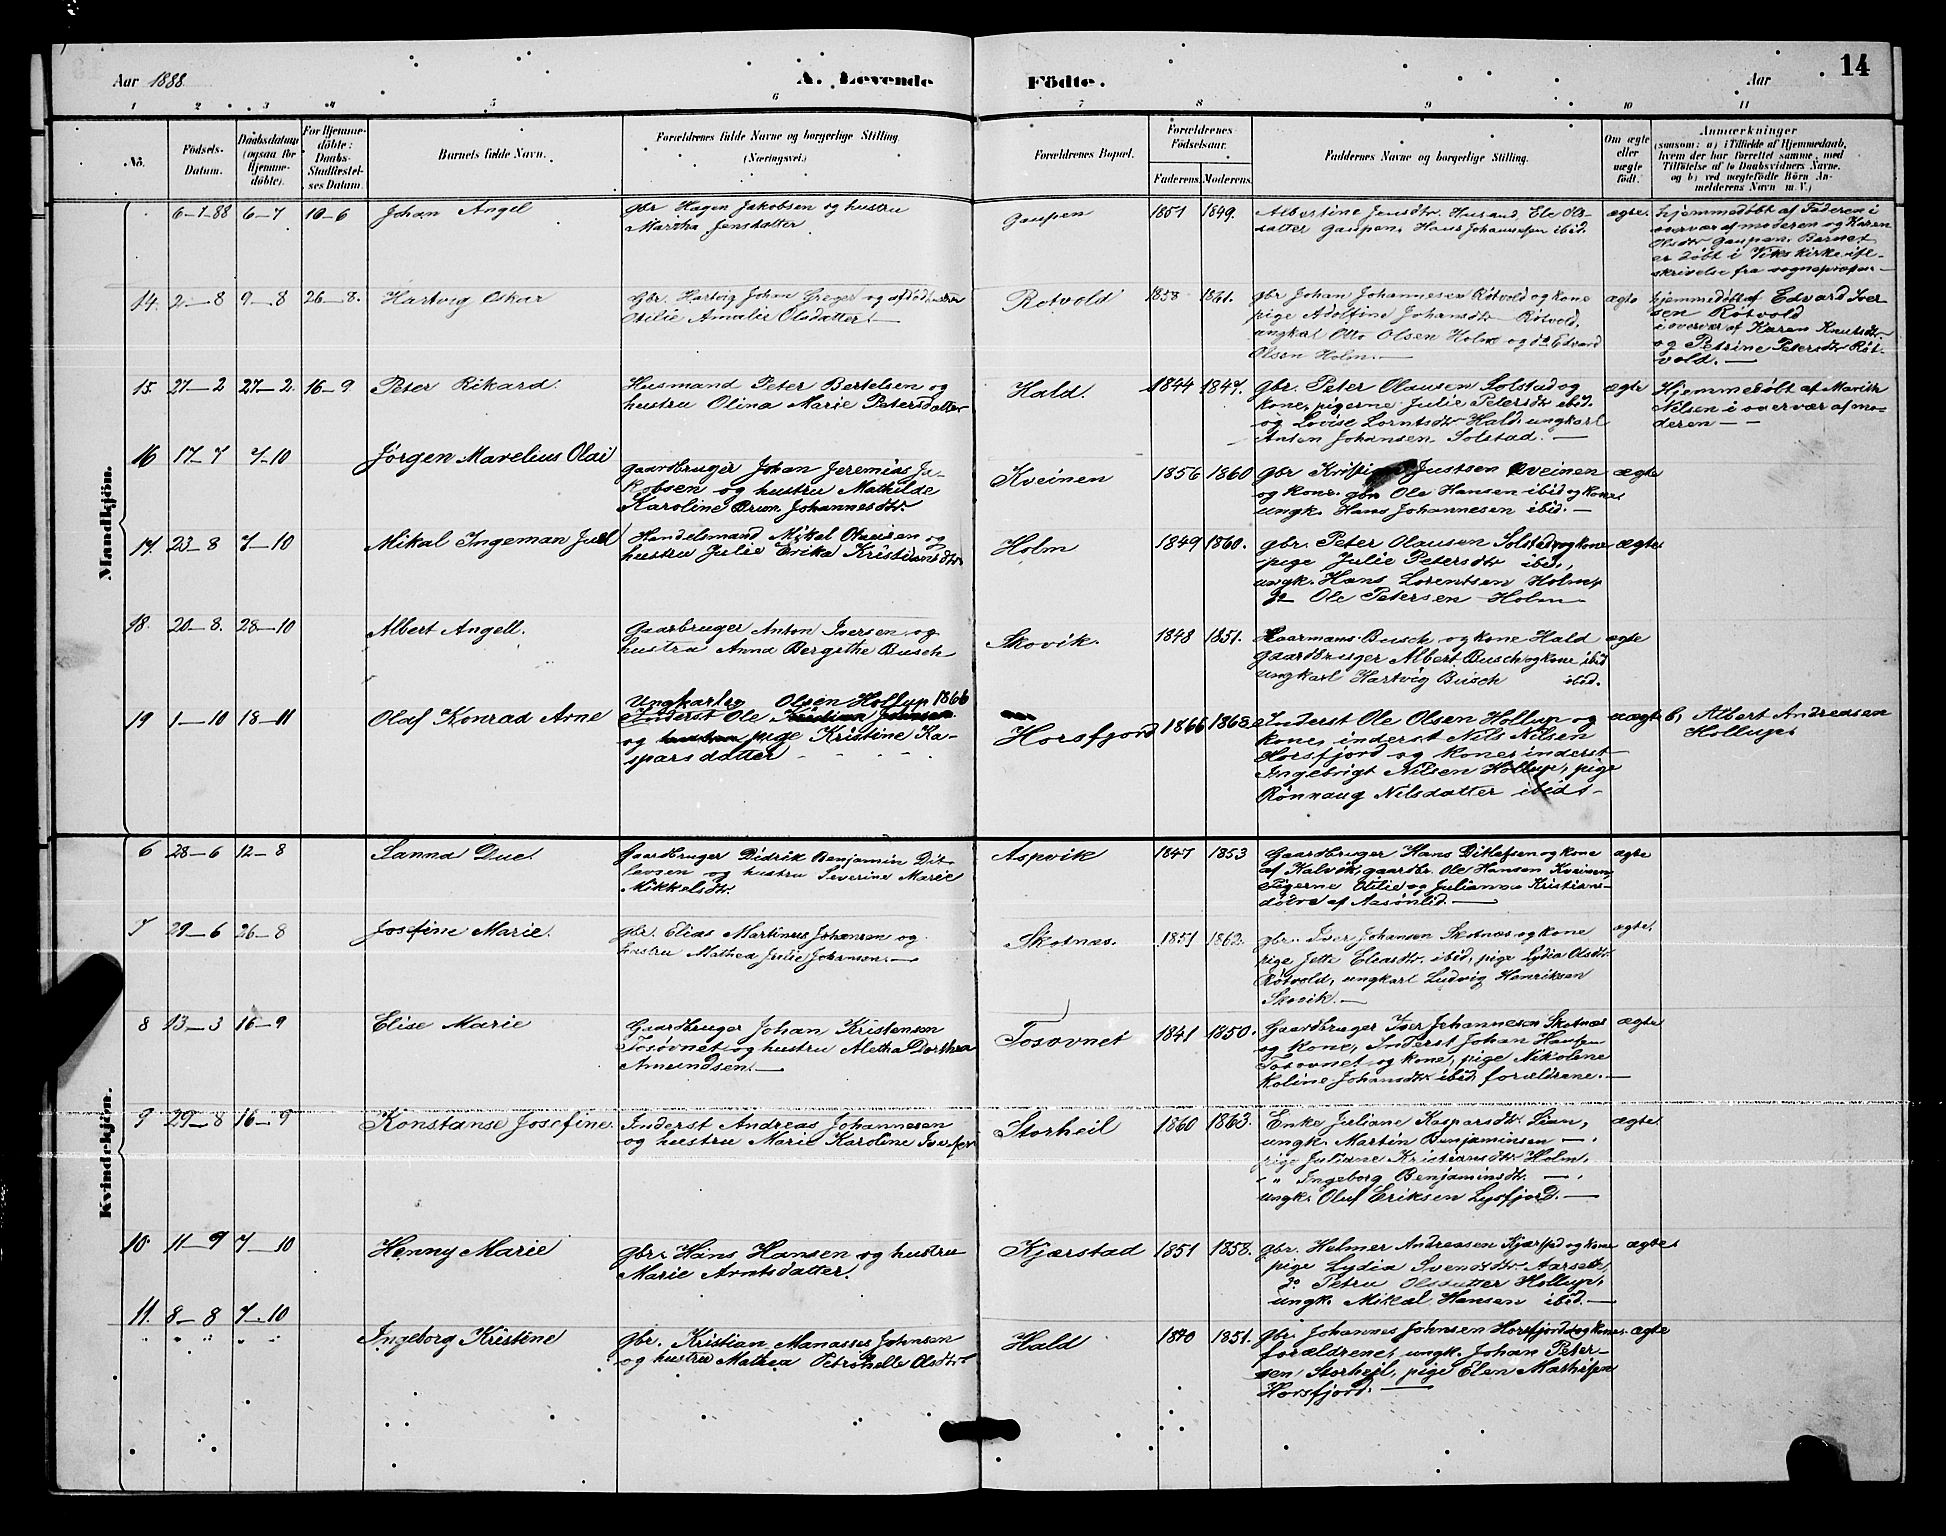 14
Aar 1888.
A. Levende
Födte.
Aar
1 2 3 4 5 6 7 8 9 10 11
No.
Födsels-
Datum.
Daabsdatum
(ogsaa for
Hjemme-
döbte).
For Hjemme-
döbte:
Daabs-
Stadfæstel-
ses Datum.
Barnets fulde Navn.
Forældrenes fulde Navne og borgerlige Stilling
(Næringsvei.)
Forældrenes Bopæl.
Forældrenes
Födselsaar.
Faderens. Moderens.
Faddernes Navne og borgerlige Stilling.
Om ægte
eller
uægte
födt.
Anmærkninger
(saasom: a) i Tilfælde af Hjemmedaab,
hvem der har forrettet samme, med
Tilföielse af to Daabsvidners Navne.
og b) ved uægtefödte Börn An-
melderens Navn m. V.)
Mandkjön.
6-1-88 6-7 10-6 Johan Angel
gbr Hagen Jakobsen og hustru
Martha Jensdatter
Gaupen 1851 1849.
Albertine Jensdtr. Husand, Ele Ols-
datter Gaupen, Hans Johannesen ibid.
ægte.
hjemmedöbt af Faderen i
overvær af moderen og Karen
Olsdtr Gaupen. Barnet
er döbt i Viks kirke ifl.
skrivelse fra sognepræsten
14. 2-8 9-8 26-8. Hartvig Oskar
Gbr. Hartvig Johan Greger og afdöd hustru
Otilie Amalie Olsdatter.
Rotvold 1858 1861.
gbr Johan Johannesen Rötvold og kone
pige Adolfine Johansdtr Rötvold,
ungkal Otto Olsen Holm og do Edvard
Olsen Holm.
ægte
hjemmedöbt af Edvard Iver-
sen Rötvold
i overvær af Karen Knutsdtr
og Petrine Petersdtr Röt-
vold.
15. 27-2 27-2. 16-9 Peter Rikard.
Husmand Peter Bertelsen og
hustru Olina Marie Petersdatter
Hald. 1844 1847.
gbr. Peter Olausen Solstad og
kone, pigerne Julie Petersdtr ibid.
og Lovise Lorntsdtr Hald, ungkarl
Anton Johansen Solstad.
ægte
Hjemmedöbt af Marith
Nilsen i overvær af mo-
deren
16 17-7 7-10 Jörgen Marelius Olai
gaardbruger Johan Jeremias Ja-
kobsen og hustru Mathilde
Karoline Brun Johannesdtr.
Kveinen 1856 1860
gbr Justsen Kveinen
og kone. gbr Ole Hansen ibid og kone,
ungk. Hans Johannesen ibid.
ægte
17. 23-8 7-10 Mikal Ingeman Juel
Handelsmand Mikal Olausen og
hustru Julie Erika Kristiansdtr
Holm 1849 1860.
gbr. Peter Olausen Solstad og kone
pige Julie Petersdtr ibid,
ungk. Hans Lorentsen Holm,
do Ole Petersen Holm
ægte
18. 20-8. 28-10 Albert Angell.
Gaarbruger Anton Iversen og
hustru Anna Bergithe Busch
Skovik. 1848 1851.
Haarmans Busch og kone Hald
gaardbruger Albert Busch og kone ibid
ungkarl Hartvig Busch ibid.
ægte
19 1-10 18-11 Olaf Konrad Arne
Ungkarl og Olsen Hollup 1866
Inderst Ole
og pige Kristine Ka-
sparsdatter
Horsfjord 1866 1868
Inderst Ole Olsen Hollup og
kone, inderst Nils Nilsen
Horsfjord og kone, inderst
Ingebrigt Nilsen Hollup, pige
Rönnaug Nilsdatter ibid.
uægte
b, Albert Andreasen
Hollup
Kvindekjön.
6 28-6 12-8 Sanna Due.
Gaardbruger Didrik Benjamin Dit-
levsen og hustru Severine Marie
Mikkelsdtr.
Aspvik 1847 1853
Gaardbruger Hans Ditlefsen og kone
af Kalvik, gaardbr. Ole Hansen Kveinen
Pigerne Otilie og Juliana Kristians-
dötre af Aasönlid.
ægte
7 29-6 26-8 Josefine Marie.
gbr. Elias Martinus Johansen og
hustru Mathea Julie Johansen.
Skotnæs. 1851 1862.
gbr. Iver Johansen Skotnæs og kone
pige Jette Eliasdtr. ibid, pige Lydia Olsdtr.
Rötvold, ungkarl Ludvig Henriksen
Skovik.
ægte.
8 13-3 16-9 Elise Marie
Gaardbruger Johan Kristensen
Tosövnet og hustru Aletha Dorthea
Amundsen.
Tosovnet 1841 1850.
Gaardbruger Iver Johannesen Skotnæs
og kone, Inderst Johan Hansen
Tosovnet og kone, pige Nikoline
Koline Johansdtr ibid. forældrene.
ægte
9 29-8 16-9 Konstanse Josefine.
Inderst Andreas Johannesen
og hustru Marie Karoline Iversen
Storheil 1860 1863.
Enke Juliane Kasparsdtr. Lian,
ungk. Martin Benjaminsen
pige Juliane Kristiansdtr Holm.
" " Ingeborg Benjaminsdtr.
ungk. Oluf Eriksen Lysfjord.
ægte.
10 11-9 7-10 Henny Marie
gbr. Hans Hansen og hustru
Marie Arntsdatter.
Kjærstad 1851 1858.
gbr. Helmer Andreasen Kjærstad og kone
pige Lydia Svendsdtr. Aarsette,
do Petra Olsdatter Hollup,
ungk. Mikal Hansen ibid.
ægte
11. 8-8 7-10
" " " " Ingeborg Kristine
gbr. Kristian Manasses Johnsen
og hustru Mathea Petronelle Olsdtr
Hald 1840 1851.
gbr. Johannes Johnsen Horsfjord og kone.
forældrene, ungk. Johan Peter-
sen Storheil, pige Elen Mathisen
Horsfjord.
ægte